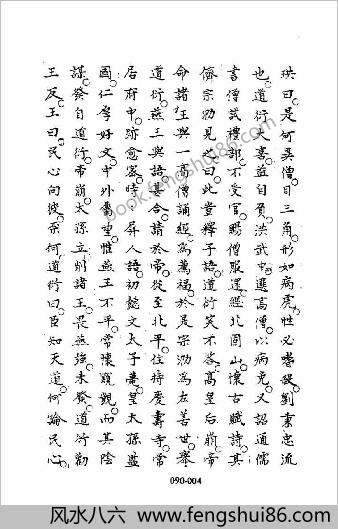 珙曰是何異僧目三角形如病虎性必嗜殺劉秉忠流
也道衍大喜益自負洪武中選高僧以病免又詔通儒
書僧試禮部不受官賜僧服還經北固山懷古賦詩其
儕宗泐見之曰此豈釋子語道衍笑不答高皇后崩帝
命諸王與一高僧誦經為薦福於是宗泐為左善世舉
道衍燕王與語甚合請於帝從至北平住持慶壽寺常
居府中跡愈密時屏人語初懿文太子薨皇太孫監
國仁孝好文中外屬望惟燕王不平常懷覬覦而其陰
謀發自道衍帝崩太孫立削諸王畏燕強未發道衍勸
王反王曰民心向彼奈何道衍曰臣知天道何論民心
090-004
book.fengshui86.com
风水八六 fengshui86.com